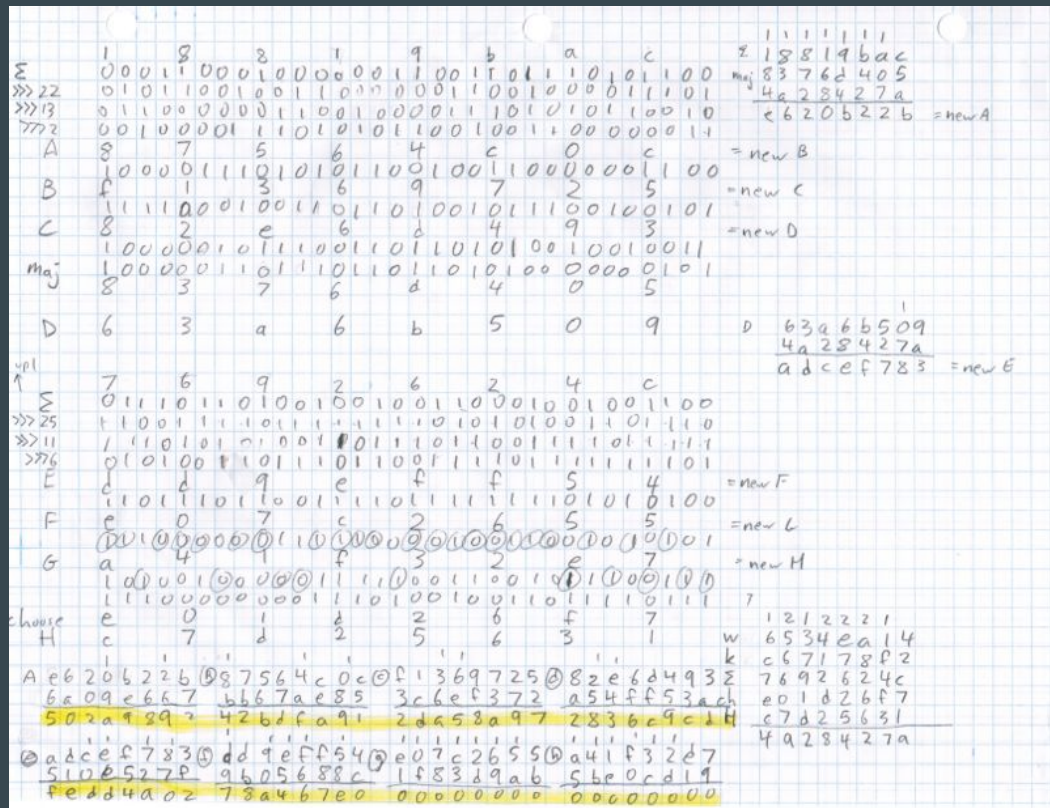 1 8 8 1 9 b a c
Σ 00011000100000011001101110101100
>>>22 01011001001100000011001000011101
>>>13 01100000011001000011101010110010
>>>2 00100001110101011001001100000011
A 8 7 5 6 4 c 0 c = new B
10000111010101100100110000001100
B f 1 3 6 9 7 2 5 = new C
11110001001101101001011100100101
C 8 2 e 6 d 4 9 3 = new D
10000010111001101101010010010011
maj 10000011011101101101010000000101
8 3 7 6 d 4 0 5
D 6 3 a 6 b 5 0 9
7 6 9 2 6 2 4 c
Σ 01110110100100100110001001001100
>>>25 11001111011111111010101001101110
>>>11 11101010100110111011001111011111
>>>6 01010011011101100111101111111101
E d d 9 e f f 5 4 = new F
11011101100111101111111101010100
F e 0 7 c 2 6 5 5
11100000011111000010011001010101
G a 4 1 f 3 2 e 7 = new H
10100100000111110011001011100111
11100000000111010010011011110111
choose e 0 1 d 2 6 f 7
H c 7 d 2 5 6 3 1
1 1 1 1 1 1 1
Σ 18819bac
maj 8376d405
4a28427a
e620b22b = new A
1
D 63a6b509
4a28427a
adcef783 = new E
1 2 1 2 2 2 1
w 6534ea14
k c67178f2
Σ 7692624c
ch e01d26f7
H c7d25631
4a28427a
A e620b22b (b) 87564c0c (c) f1369725 (d) 82e6d493
6a09e667 bb67ae85 3c6ef372 a54ff53a
42bdfa91 2da58a97 2836c9cd
(e) adcef783 (f) dd9eff54 (g) e07c2655 (h) a41f32e7
510e527f 9b05688c 1f83d9ab 5be0cd19
fedd4a02 78a467e0 00000000 00000000